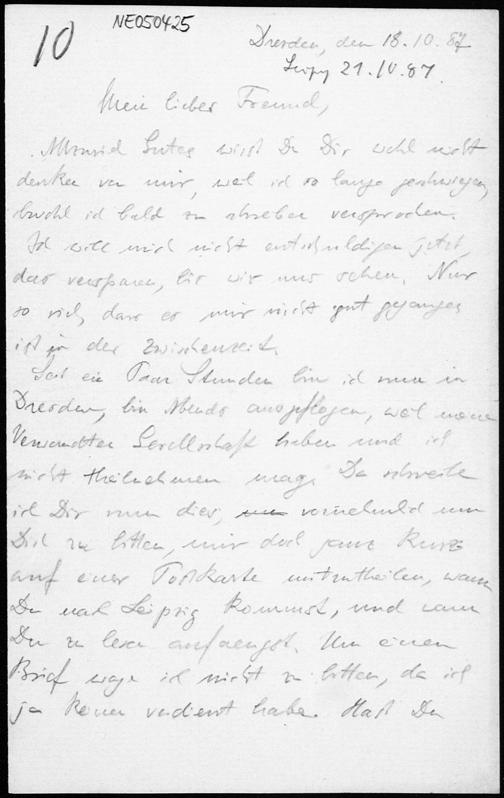 10
NE050425
Dresden, den 18.10.87
Leipzig 21.10.87.
Mein lieber Freund,
Gutes wirst Du Dir wohl nicht
denken von mir, weil ich so lange geschwiegen,
obwohl ich bald zu schreiben versprochen.
Ich will mich nicht entschuldigen jetzt,
das versparen, bis wir uns sehen. Nur
so viel, dass es mir nicht gut gegangen
ist in der Zwischenzeit.
Seit ein Paar Stunden bin ich nun in
Dresden, bin Abends ausgeflogen, weil meine
Verwandten Gesellschaft haben und ich
nicht theilnehmen mag. Da schreibe
ich Dir nun dies, vornehmlich um
Dich zu bitten, mir doch ganz kurz
auf einer Postkarte mitzutheilen, wann
Du nach Leipzig kommst, und wann
Du zu lesen anfaengst. Um einen
Brief wage ich nicht zu bitten, da ich
ja keinen verdient habe. Hast Du